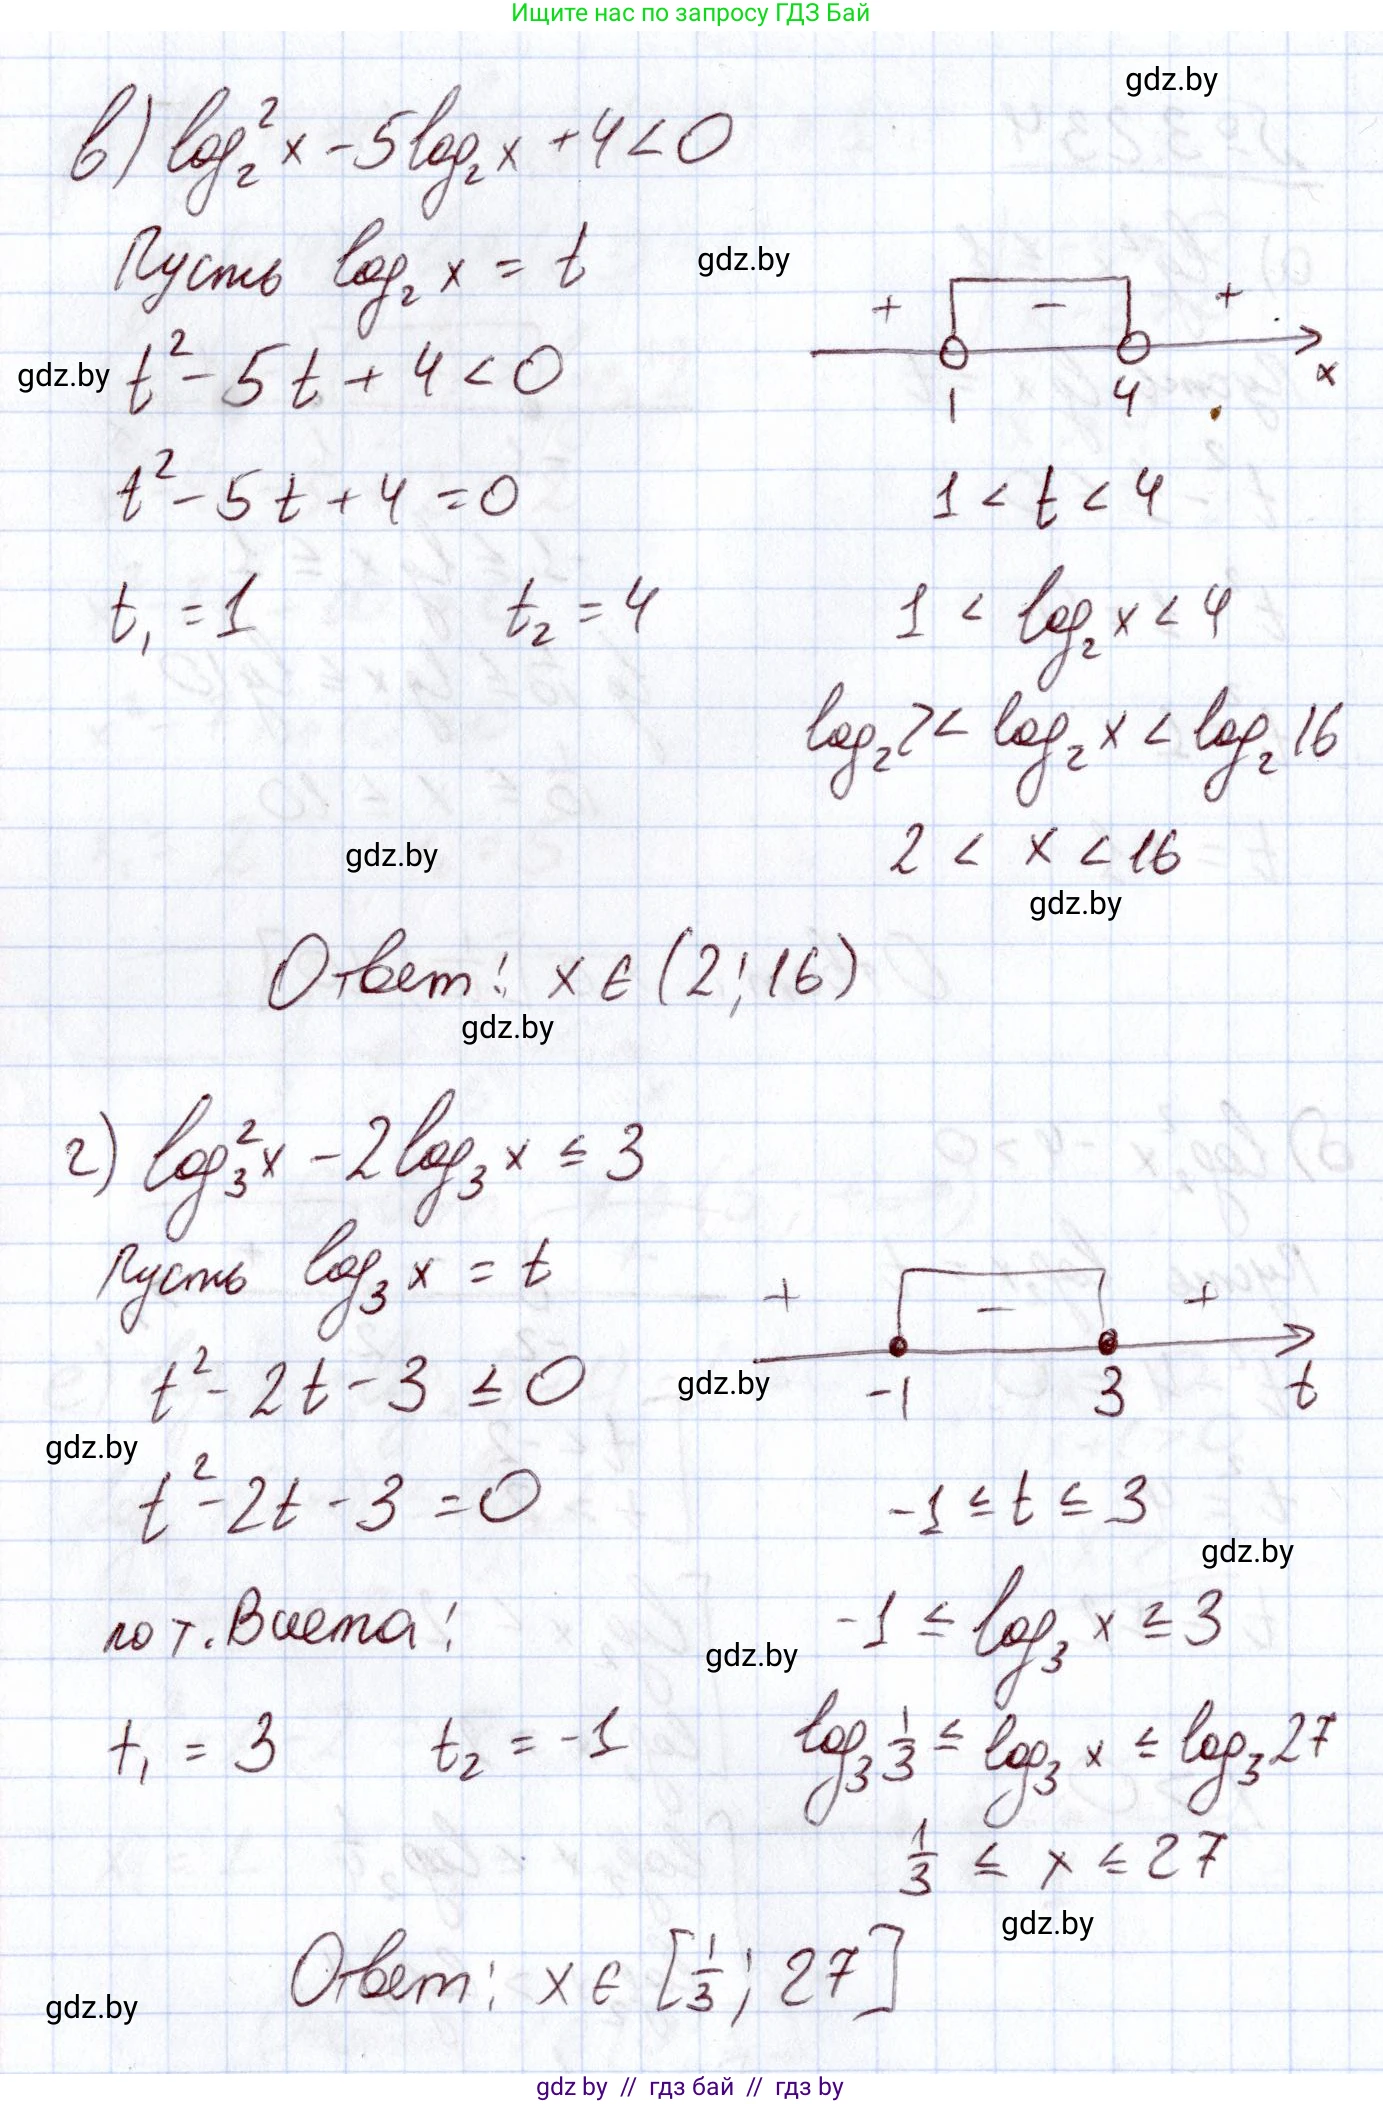 Ищите нас по запросу ГДЗ Бай
gdz.by
в) log₂² x - 5 log₂ x + 4 < 0
Пусть log₂ x = t
gdz.by
+ - +
gdz.by
t² - 5t + 4 < 0
1 4 x
t² - 5t + 4 = 0
1 < t < 4
t₁ = 1 t₂ = 4
1 < log₂ x < 4
log₂ 2 < log₂ x < log₂ 16
2 < x < 16
gdz.by
gdz.by
Ответ: x ∈ (2; 16)
gdz.by
г) log₃² x - 2 log₃ x ≤ 3
Пусть log₃ x = t
+ - +
t² - 2t - 3 ≤ 0
gdz.by
-1 3 t
gdz.by
t² - 2t - 3 = 0
-1 ≤ t ≤ 3
gdz.by
по т. Виета:
-1 ≤ log₃ x ≥ 3
gdz.by
t₁ = 3 t₂ = -1
log₃ 1/3 ≤ log₃ x ≤ log₃ 27
1/3 ≤ x ≤ 27
gdz.by
Ответ: x ∈ [1/3; 27]
gdz.by
gdz by // гдз бай // гдз by